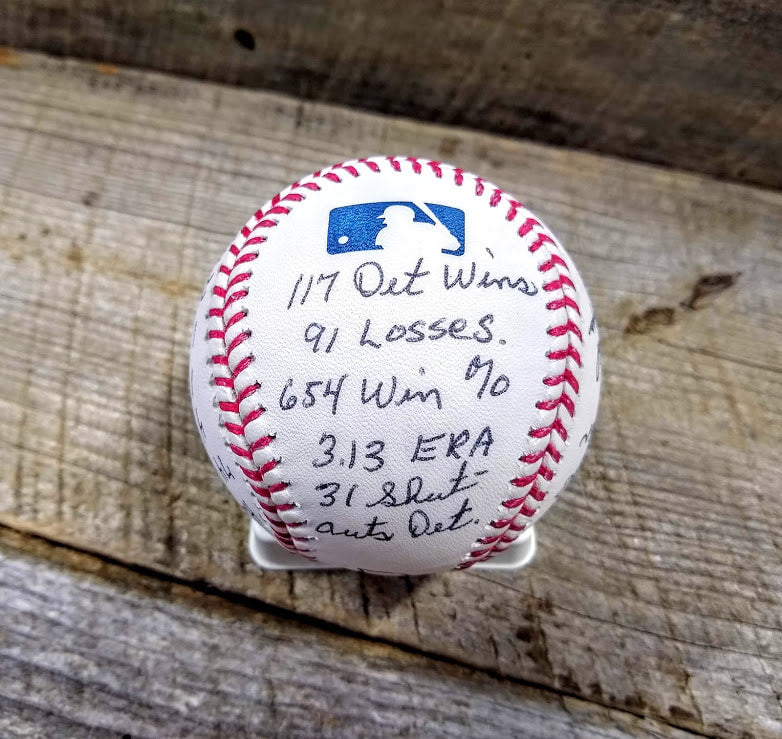 117 Det Wins
91 Losses.
654 Win %
3.13 ERA
31 Shut-
outs Det.